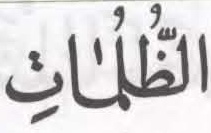 الظُّلُمَاتِ